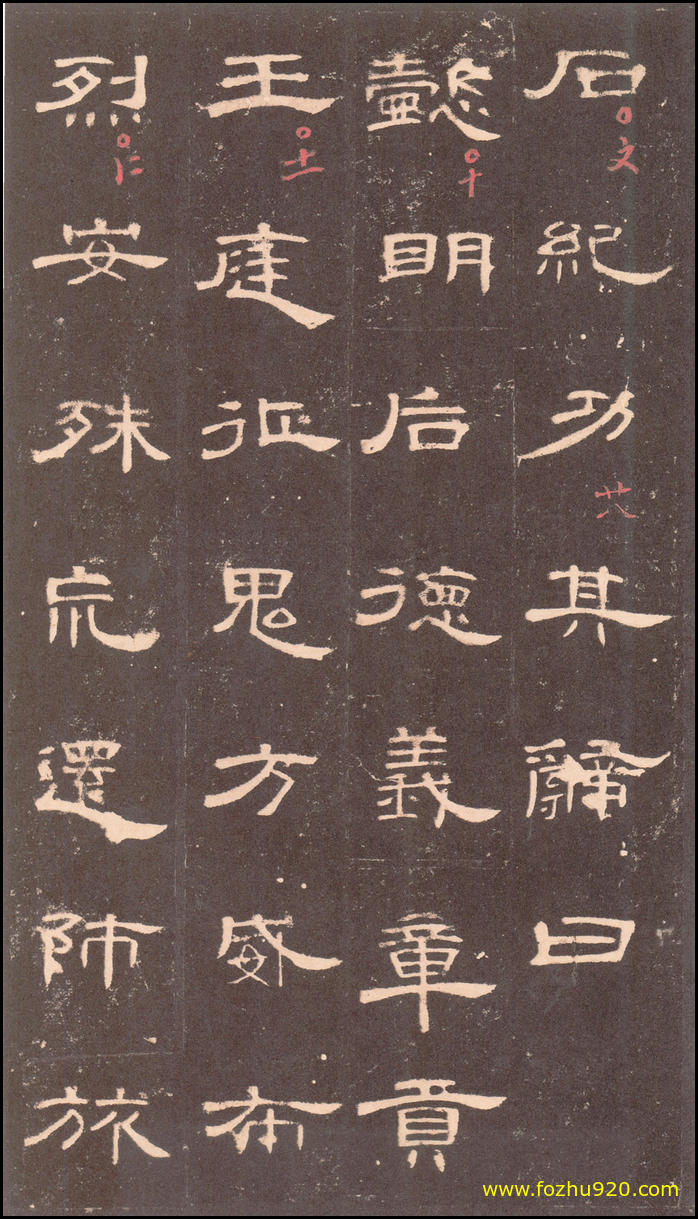 石紀功其辭曰
懿明后德義章貢
王庭征鬼方威布
烈安殊巟還師旅
文
廿八
十
十一
www.fozhu920.com